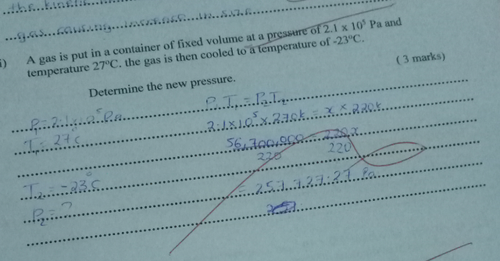 the kinetic
gas causing increase in size
A gas is put in a container of fixed volume at a pressure of 2.1 x 10⁵ Pa and
temperature 27°C. the gas is then cooled to a temperature of -23°C.
( 3 marks)
Determine the new pressure.
P₁=2.1x10⁵Pa
P₁T₁=P₂T₂
T₁=27°C
2.1x10⁵x270k = x x 220k
56,700,000 220x
220 220
T₂=-23°C
= 257,727.27 Pa
P₂=?